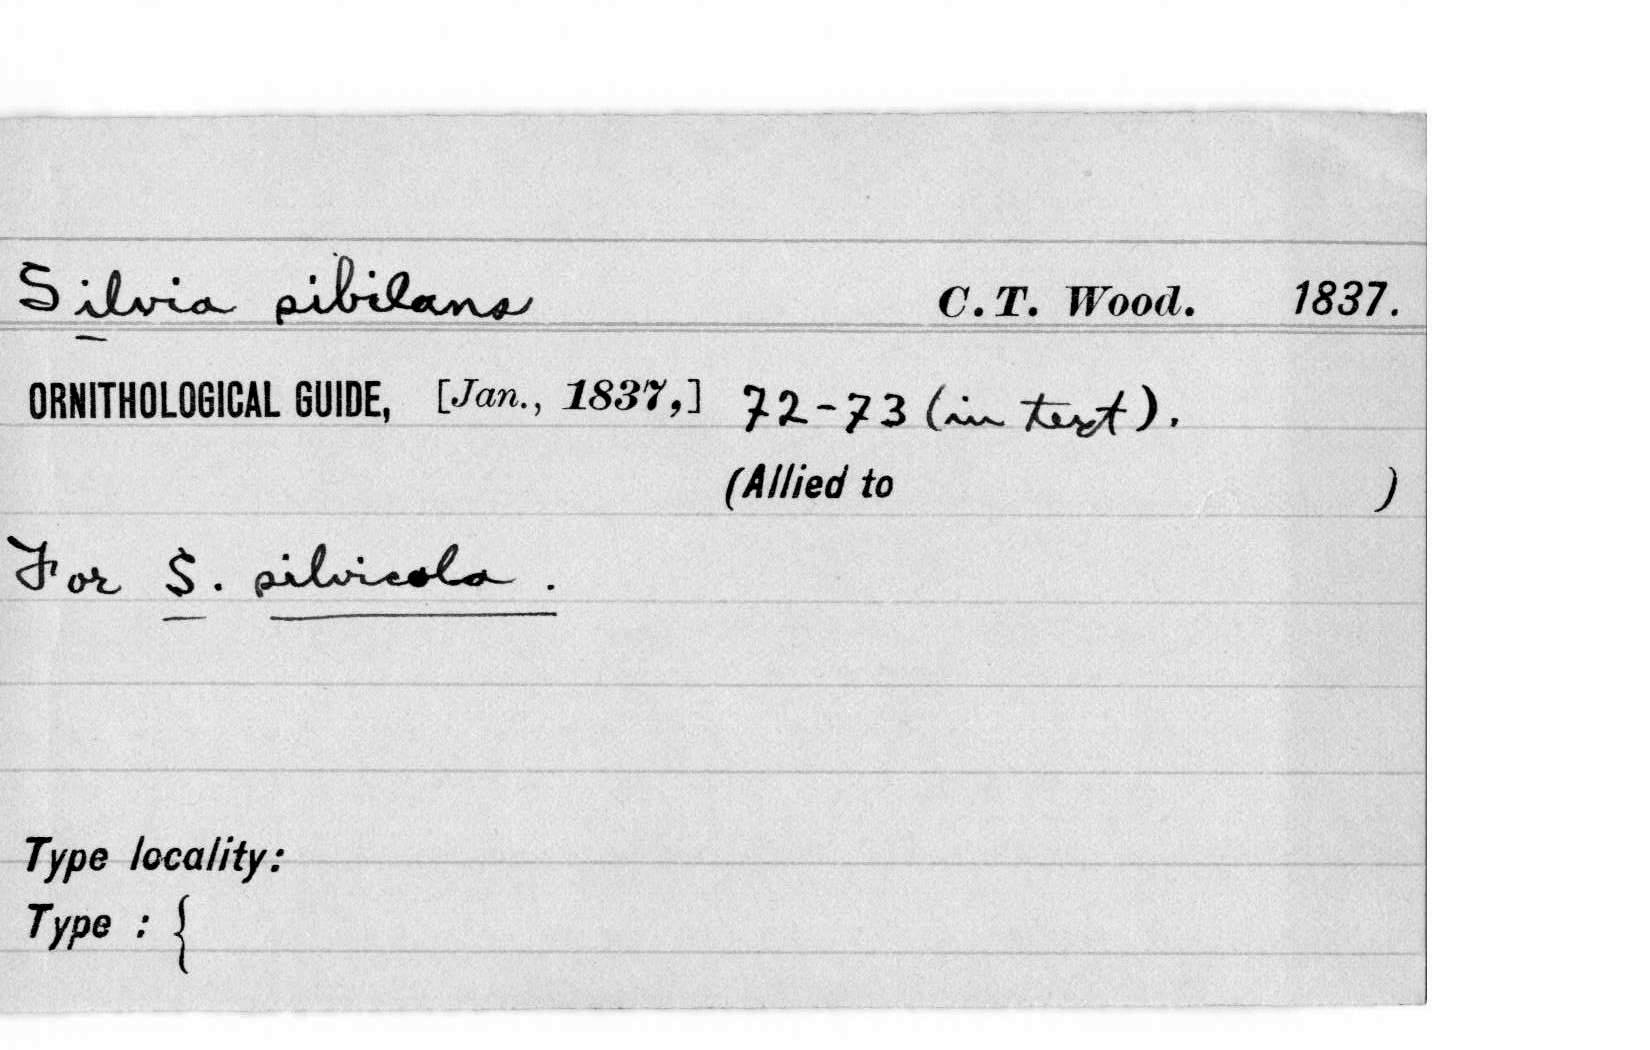 Silvia sibilans C. T. Wood. 1837.
ORNITHOLOGICAL GUIDE, [Jan., 1837,] 72-73 (in text).
(Allied to )
For S. silvicola.
Type locality:
Type : {